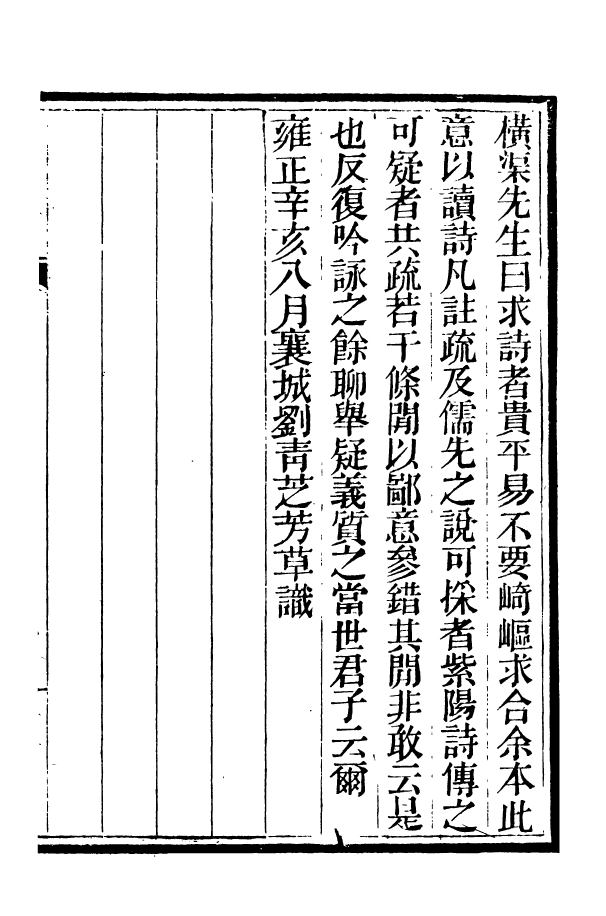 橫渠先生曰求詩者貴平易不要崎嶇求合余本此
意以讀詩凡註疏及儒先之說可採者紫陽詩傳之
可疑者共疏若干條閒以鄙意參錯其閒非敢云是
也反復吟詠之餘聊舉疑義質之當世君子云爾
雍正辛亥八月襄城劉青芝芳草識